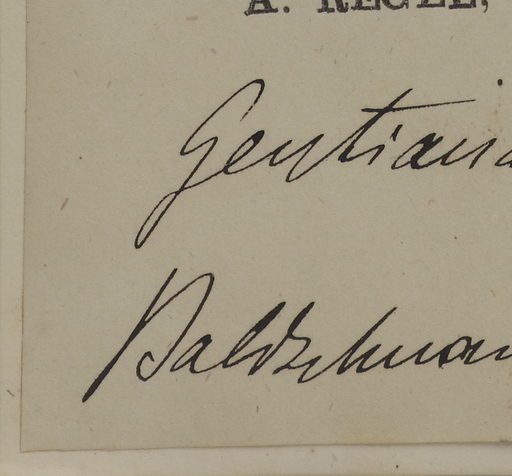 A. REGEL,
Gentiana
Baldschuan